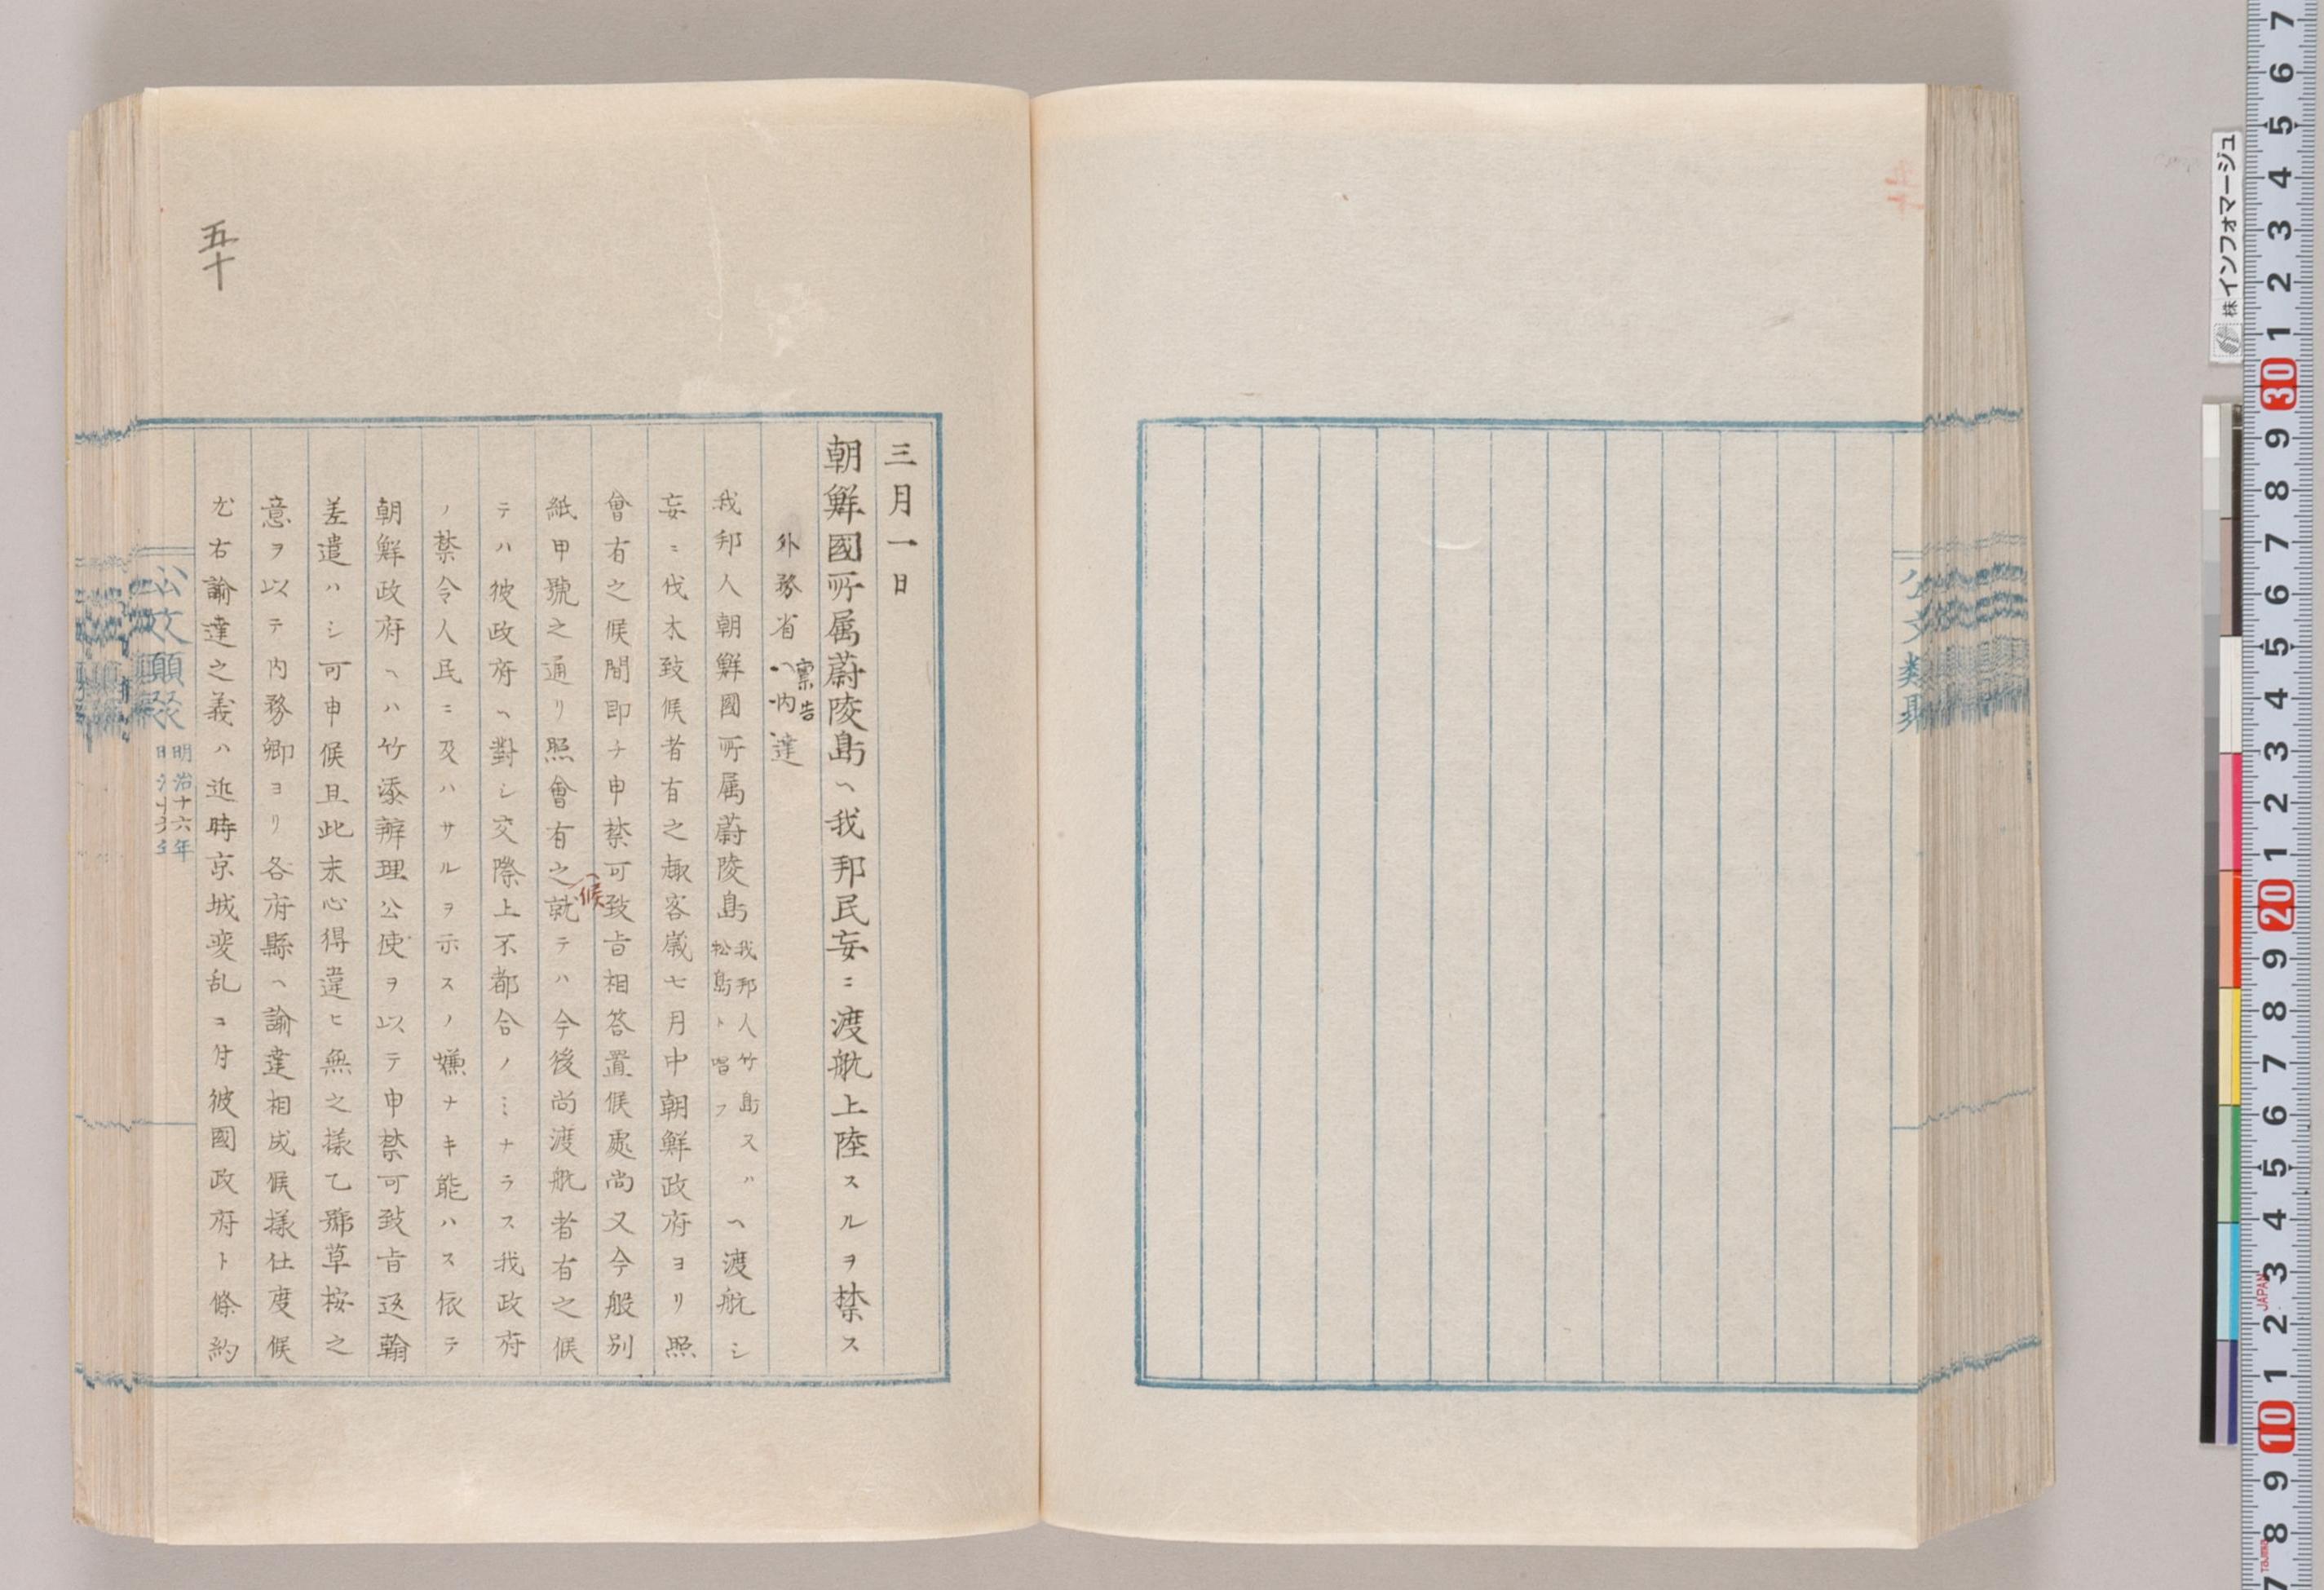 五十
三月一日
朝鮮國所属蔚陵島ヘ我邦民妄ニ渡航上陸スルヲ禁ス
外務省稟告
内達
我邦人朝鮮國所属蔚陵島我邦人竹島又ハ松島ト唱フヘ渡航シ
妄ニ伐木致候者有之趣客歳七月中朝鮮政府ヨリ照
會有之候間即チ申禁可致旨相答置候處尚又今般別
紙甲號之通リ照會有之候就テハ今後尚渡航者有之候
テハ彼政府ヘ對シ交際上不都合ノミナラス我政府
ノ禁令人民ニ及ハサルヲ示スノ嫌ナキ能ハス依テ
朝鮮政府ヘハ竹添辦理公使ヲ以テ申禁可致旨返翰
差遣ハシ可申候且此末心得違ヒ無之様乙號草桉之
意ヲ以テ内務卿ヨリ各府縣ヘ諭達相成候様仕度候
尤右諭達之義ハ近時京城変乱ヨ付彼國政府ト條約
公文類聚
明治十六年
公文類聚
株 インフォマージュ
7 6 5 4 3 2 1 30 9 8 7 6 5 4 3 2 1 20 9 8 7 6 5 4 3 2 1 10 9 8 7
JAPAN
TAJIMA